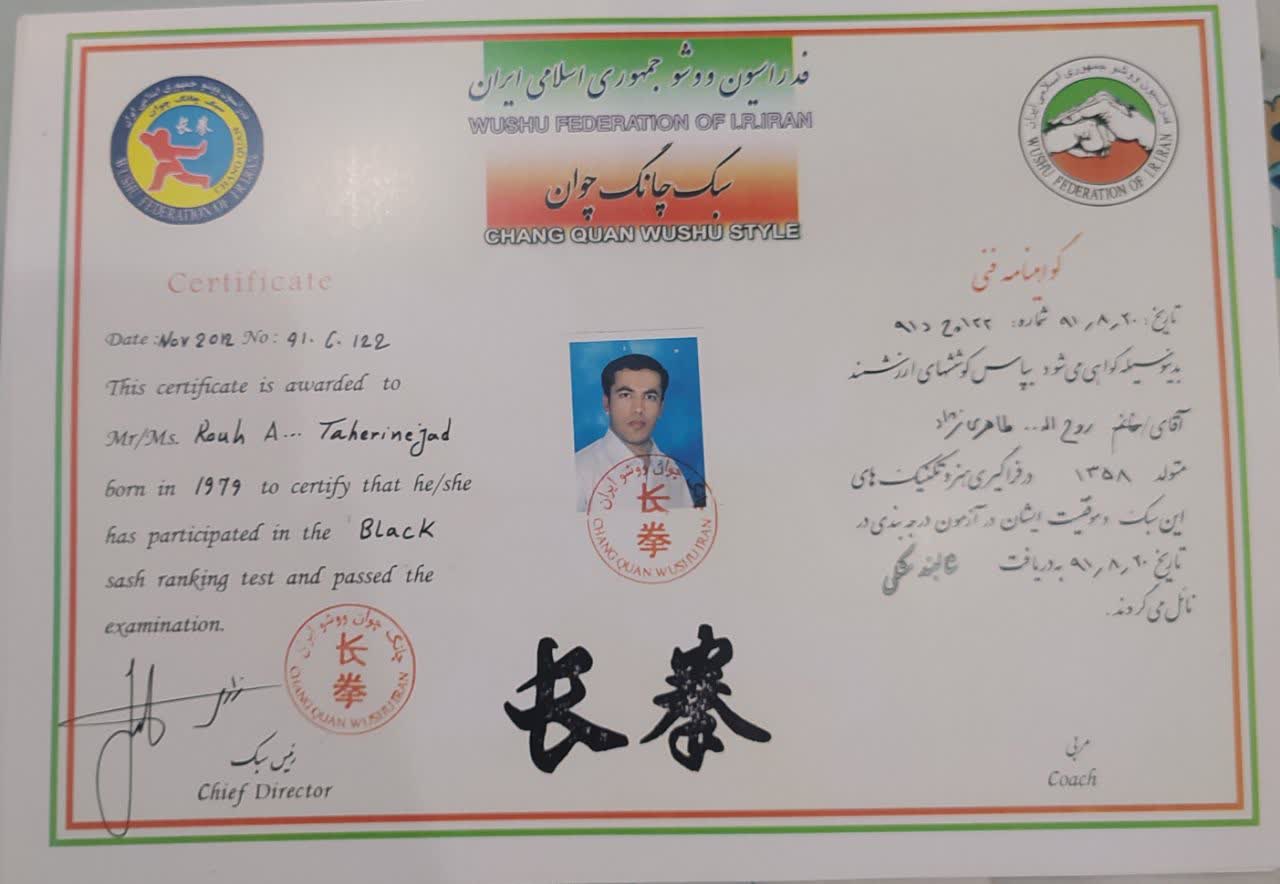 فدراسیون ووشو جمهوری اسلامی ایران
WUSHU FEDERATION OF I.R.IRAN
سبک چانگ چوان
CHANG QUAN WUSHU STYLE
فدراسیون ووشو جمهوری اسلامی ایران
سبک چانگ چوان
长拳
CHANG QUAN
WUSHU FEDERATION OF I.R.IRAN
فدراسیون ووشو جمهوری اسلامی ایران
WUSHU FEDERATION OF I.R.IRAN
Certificate
Date: Nov 2012 No: 91. C. 122
This certificate is awarded to
Mr/Ms. Rouh A... Taherinejad
born in 1979 to certify that he/she
has participated in the Black
sash ranking test and passed the
examination.
چانگ چوان ووشو ایران
长拳
CHANG QUAN WUSHU IRAN
رئیس سبک
Chief Director
چوان ووشو ایران
长拳
CHANG QUAN WUSHU IRAN
长拳
گواهینامه فنی
تاریخ: ۹۱٫۸٫۲۰ شماره: ۱۲۲
بدینوسیله گواهی می شود بپاس کوششهای ارزشمند
آقای/خانم روح الـ... طاهری نژاد
متولد ۱۳۵۸ در فراگیری هنر و تکنیک های
این سبک و موفقیت ایشان در آزمون درجه بندی در
تاریخ ۹۱٫۸٫۲۰ به دریافت مشکی
نائل می گردند.
مربی
Coach